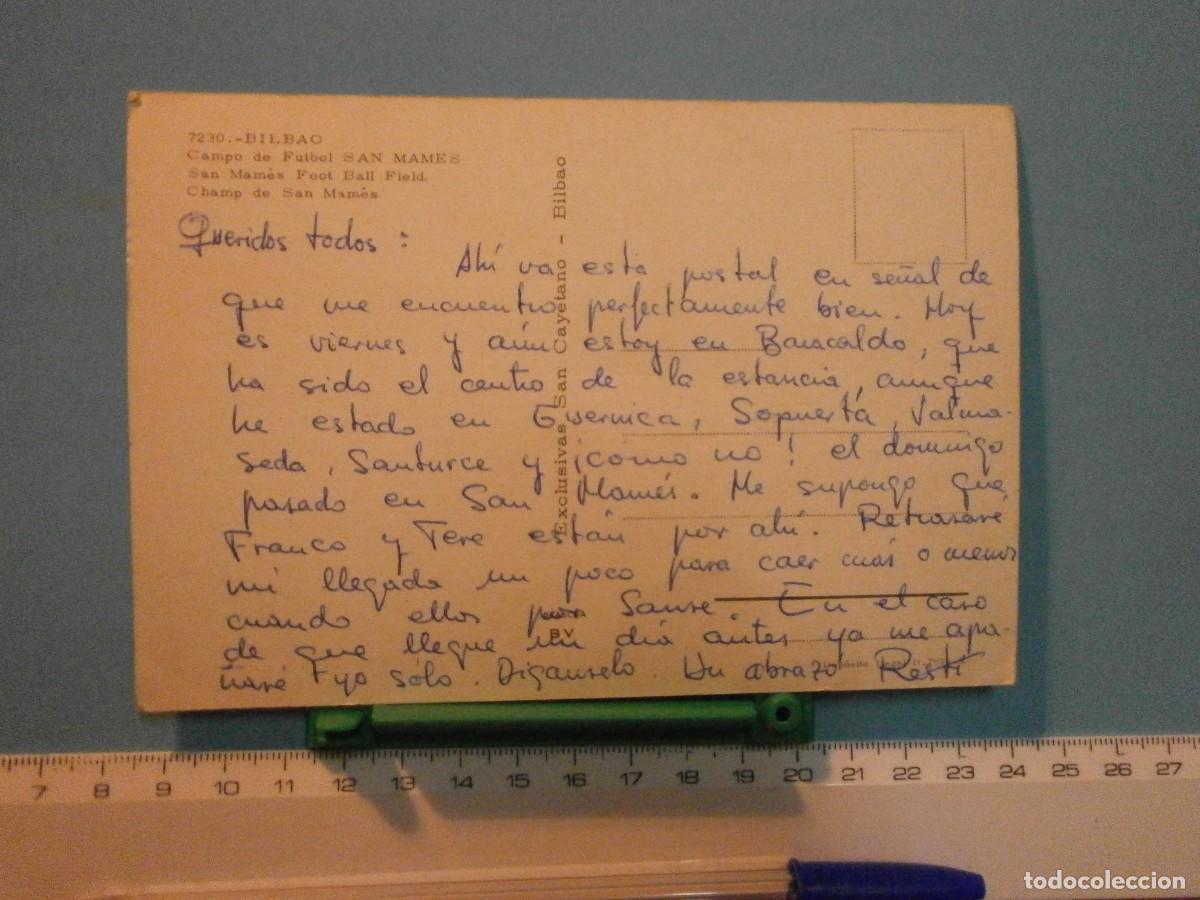 7230.-BILBAO
Campo de Futbol SAN MAMES
San Mamés Foot Ball Field
Champ de San Mamés
Exclusivas San Cayetano - Bilbao
Queridos todos:
Ahí va esta postal en señal de
que me encuentro perfectamente bien. Hoy
es viernes y aún estoy en Baracaldo, que
ha sido el centro de la estancia, aunque
he estado en Guernica, Sopuerta, Valma-
seda, Santurce y ¡como no! el domingo
pasado en San Mamés. Me supongo que
Franco y Tere están por ahí. Retrasaré
mi llegada un poco para caer más o menos
cuando ellos por Sanse. En el caso
de que llegue un día antes ya me apa-
ñaré yo sólo. Díganselo. Un abrazo Resti
BV
7 8 9 10 11 12 13 14 15 16 17 18 19 20 21 22 23 24 25 26 27
todocoleccion